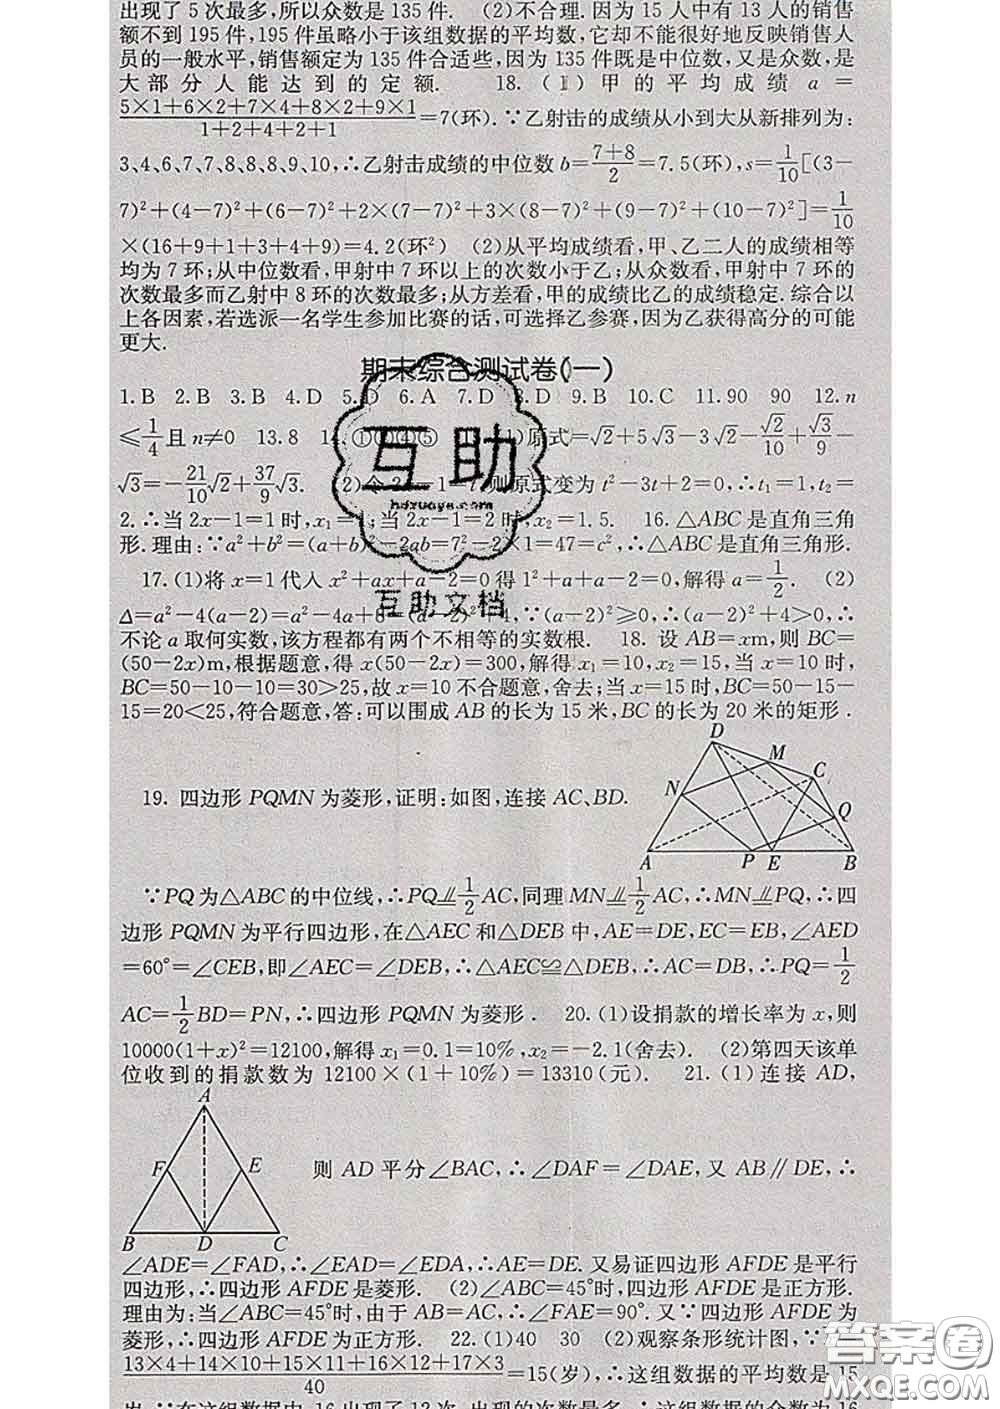 出现了 5 次最多,所以众数是 135 件. (2)不合理. 因为 15 人中有 13 人的销售
额不到 195 件,195 件虽略小于该组数据的平均数,它却不能很好地反映销售人
员的一般水平,销售额定为 135 件合适些,因为 135 件既是中位数,又是众数,是
大部分人能达到的定额. 18. (1)甲的平均成绩 a=
(5×1+6×2+7×4+8×2+9×1)/(1+2+4+2+1)=7(环). ∵乙射击的成绩从小到大从新排列为:
3、4、6、7、7、8、8、8、9、10,∴乙射击成绩的中位数 b=(7+8)/2=7.5(环),s=1/10[(3-
7)²+(4-7)²+(6-7)²+2×(7-7)²+3×(8-7)²+(9-7)²+(10-7)²]=1/10
×(16+9+1+3+4+9)=4.2(环²) (2)从平均成绩看,甲、乙二人的成绩相等
均为 7 环;从中位数看,甲射中 7 环以上的次数小于乙;从众数看,甲射中 7 环的
次数最多而乙射中 8 环的次数最多;从方差看,甲的成绩比乙的成绩稳定. 综合以
上各因素,若选派一名学生参加比赛的话,可选择乙参赛,因为乙获得高分的可能
更大.
期末综合测试卷(一)
1. B 2. B 3. B 4. D 5. D 6. A 7. D 8. D 9. B 10. C 11. 90 90 12. n
≤1/4且 n≠0 13. 8 ⑤ (1)原式=√2+5√3-3√2-√2/10+√3/9-
√3=-21/10√2+37/9√3. (2)令 2x-1=t,则原式变为 t²-3t+2=0,∴t₁=1,t₂=
2. ∴当 2x-1=1 时,x₁=1;当 2x-1=2 时,x₂=1.5. 16. △ABC 是直角三角
形. 理由:∵a²+b²=(a+b)²-2ab=7²-2×1=47=c²,∴△ABC 是直角三角形.
17. (1)将 x=1 代入 x²+ax+a-2=0 得 1²+a+a-2=0,解得 a=1/2. (2)
Δ=a²-4(a-2)=a²-4a+8=(a-2)²+4,∵(a-2)²≥0,∴(a-2)²+4>0,∴
不论 a 取何实数,该方程都有两个不相等的实数根. 18. 设 AB=xm,则 BC=
(50-2x)m,根据题意,得 x(50-2x)=300,解得 x₁=10,x₂=15,当 x=10 时,
BC=50-10-10=30>25,故 x=10 不合题意,舍去;当 x=15 时,BC=50-15-
15=20<25,符合题意,答:可以围成 AB 的长为 15 米,BC 的长为 20 米的矩形.
D
M
C
N
Q
A P E B
19. 四边形 PQMN 为菱形,证明:如图,连接 AC、BD.
∵PQ 为△ABC 的中位线,∴PQ⫽1/2AC,同理 MN⫽1/2AC,∴MN⫽PQ,∴四
边形 PQMN 为平行四边形,在△AEC 和△DEB 中,AE=DE,EC=EB,∠AED
=60°=∠CEB,即∠AEC=∠DEB,∴△AEC≌△DEB,∴AC=DB,∴PQ=1/2
AC=1/2BD=PN,∴四边形 PQMN 为菱形. 20. (1)设捐款的增长率为 x,则
10000(1+x)²=12100,解得 x₁=0.1=10%,x₂=-2.1(舍去). (2)第四天该单
位收到的捐款数为 12100×(1+10%)=13310(元). 21. (1)连接 AD,
A
F E
B D C
则 AD 平分∠BAC,∴∠DAF=∠DAE,又 AB∥DE,∴
∠ADE=∠FAD,∴∠EAD=∠EDA,∴AE=DE. 又易证四边形 AFDE 是平行
四边形,∴四边形 AFDE 是菱形. (2)∠ABC=45°时,四边形 AFDE 是正方形.
理由为:当∠ABC=45°时,由于 AB=AC,∴∠FAE=90°. 又∵四边形 AFDE 为
菱形,∴四边形 AFDE 为正方形. 22. (1)40 30 (2)观察条形统计图,∵
(13×4+14×10+15×11+16×12+17×3)/40=15(岁),∴这组数据的平均数是 15
岁,∵在这组数据中,16 出现了 12 次,出现的次数最多,∴这组数据的众数为 16
互助
hdzuoye.com
互助文档
答案圈
MXQE.COM